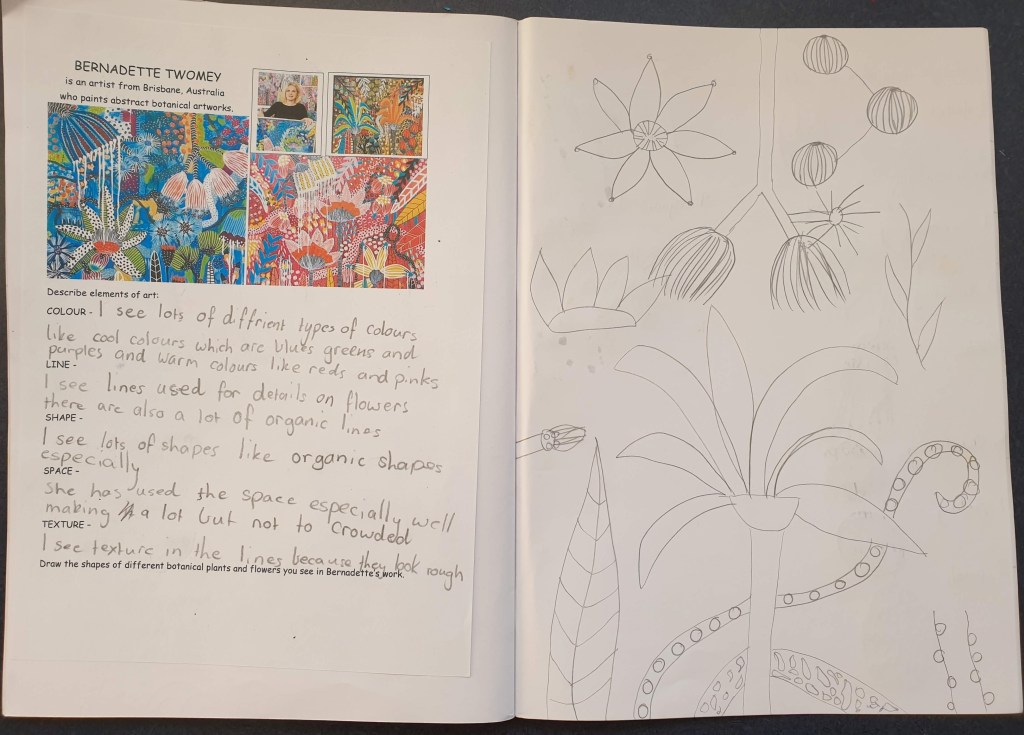 BERNADETTE TWOMEY
is an artist from Brisbane, Australia
who paints abstract botanical artworks.
Describe elements of art:
COLOUR - I see lots of diffrient types of colours
like cool colours which are blues greens and
purples and warm colours like reds and pinks
LINE -
I see lines used for details on flowers
there are also a lot of organic lines
SHAPE -
I see lots of shapes like organic shapes
especially
SPACE -
She has used the space especially well
making a lot but not to crowded
TEXTURE -
I see texture in the lines because they look rough
Draw the shapes of different botanical plants and flowers you see in Bernadette's work.